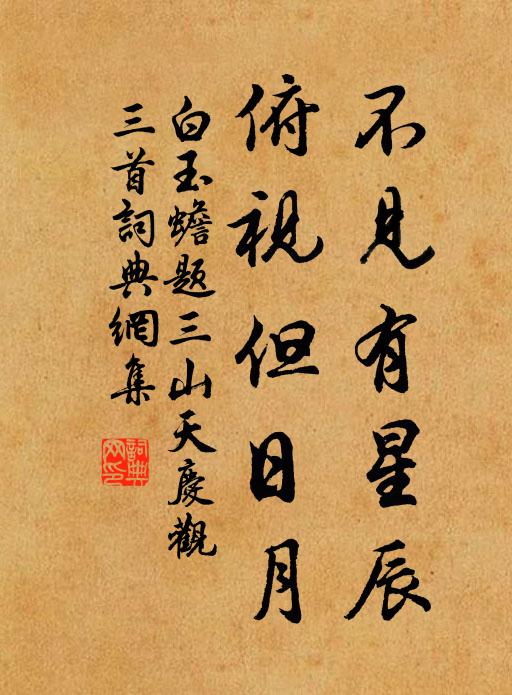 不見有星辰
俯視但日月
白玉蟾題三山天慶觀
三首詞典網集
詞典
网印